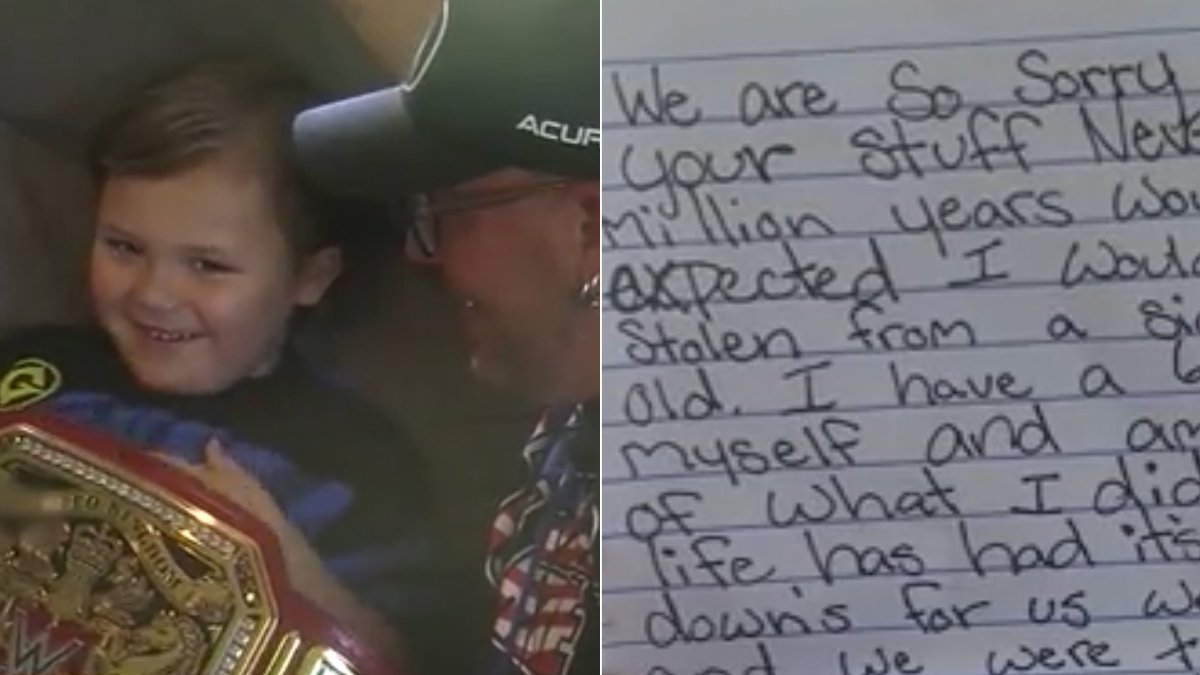 ACUR
We are So Sorry
your Stuff Neve
million years wou
expected I would
Stolen from a si
old. I have a 6
myself and am
of what I did
life has had it's
down's for us w
and we were t
W